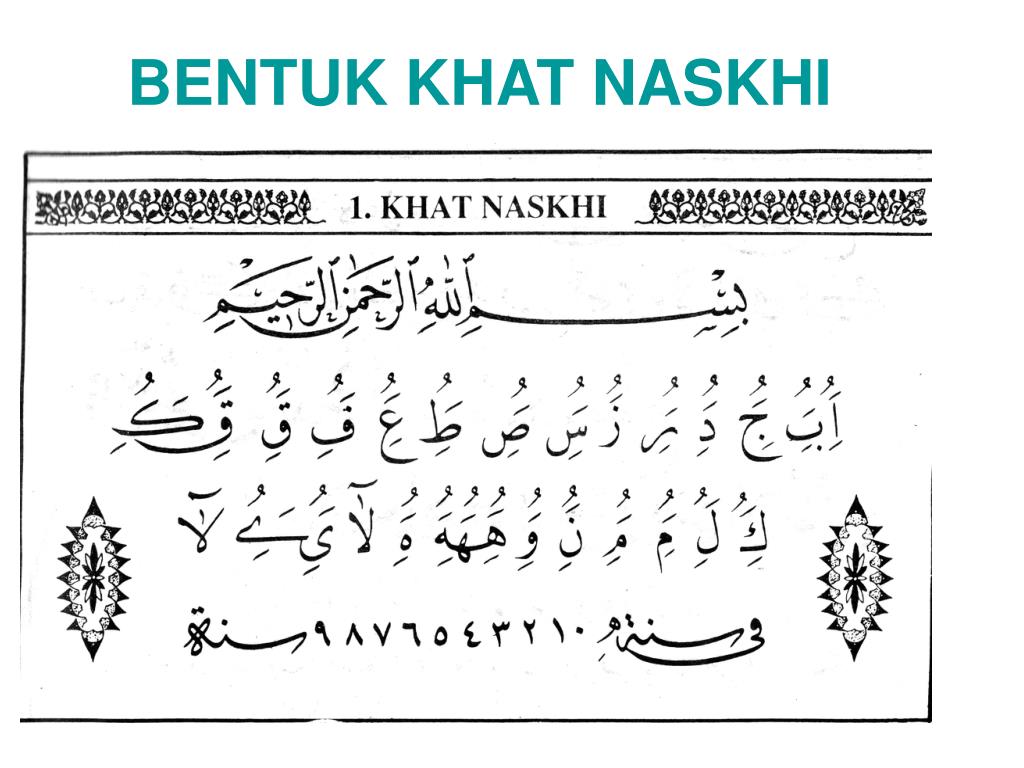 BENTUK KHAT NASKHI
1. KHAT NASKHI
بِسْمِ اللهِ الرَّحْمٰنِ الرَّحِيْمِ
اَُِ بَُِ جَُِ دَُِ رَُِ زَُِ سَُِ صَُِ طَُِ عَُِ فَُِ قَُِ قَُِ كَُِ
كَُِ لَُِ مَُِ مَُِ نَُِ وَُِ هَُِهَُِهَُِ هَُِ لآ يَُِ ےَُِ لآ
في سنة ٠ ١ ٢ ٣ ٤ ٥ ٦ ٧ ٨ ٩ سنة